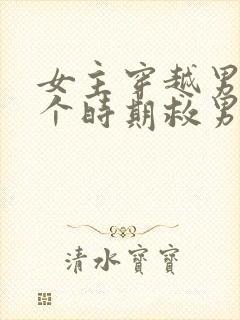 女主穿越男
个時期救男
清水寶寶